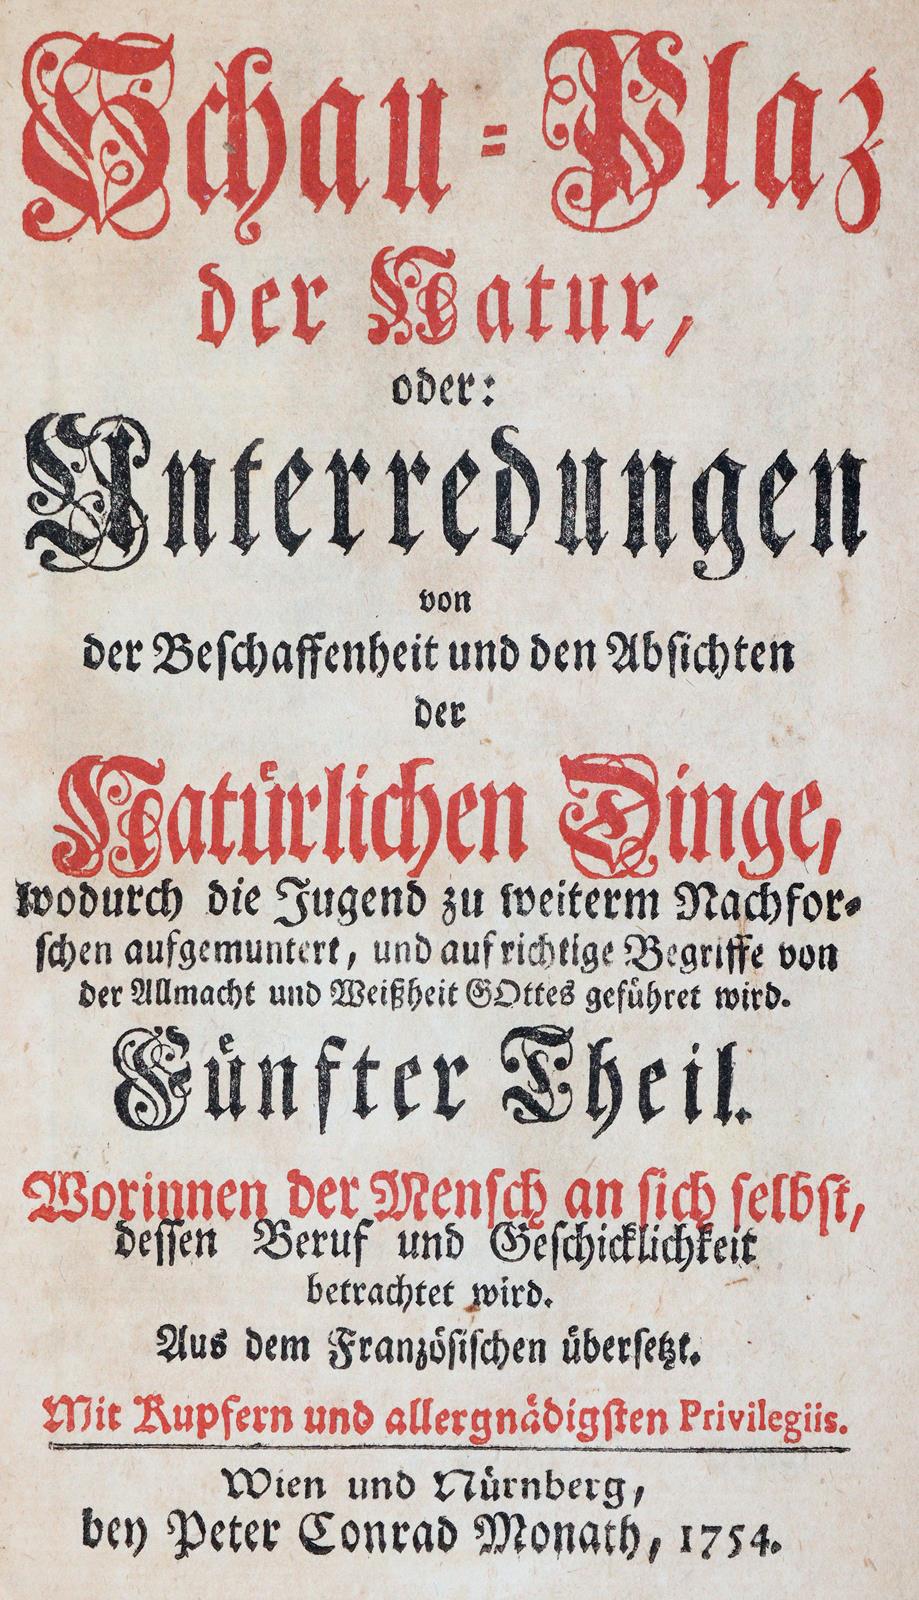 Schau-Plaz
der Natur,
oder:
Unterredungen
von
der Beschaffenheit und den Absichten
der
Natürlichen Dinge,
wodurch die Jugend zu weiterm Nachfor-
schen aufgemuntert, und auf richtige Begriffe von
der Allmacht und Weißheit GOttes geführet wird.
Fünfter Theil.
Worinnen der Mensch an sich selbst,
dessen Beruf und Geschicklichkeit
betrachtet wird.
Aus dem Französischen übersetzt.
Mit Kupfern und allergnädigsten Privilegiis.
Wien und Nürnberg,
bey Peter Conrad Monath, 1754.